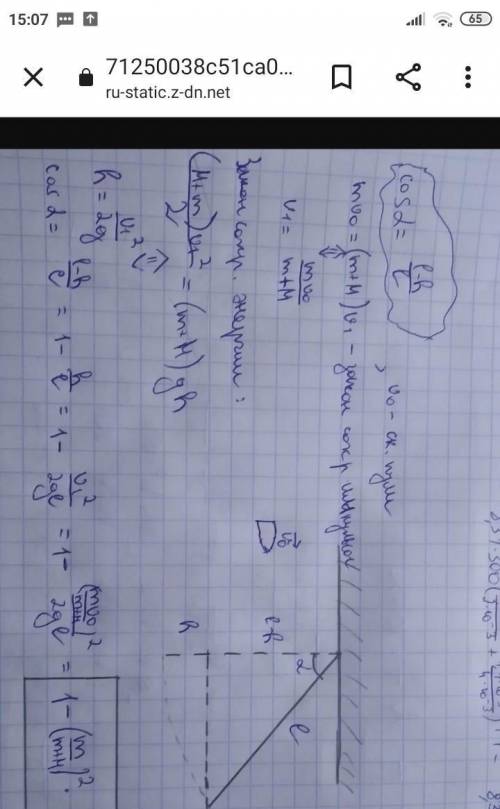 15:07
65
71250038c51ca0...
ru-static.z-dn.net
cos α = (l-h)/l , v₀ - ск. пули
mv₀ = (m+M)v₁ - закон сохр импульсов
⇓
v₁ = mv₀/(m+M)
Закон сохр. энергии:
(M+m)v₁²/2 = (m+M)gh
⇓
h = v₁²/2g
cos α = (l-h)/l = 1 - h/l = 1 - v₁²/2gl = 1 - (mv₀/(m+M))²/2gl = 1 - (m/(m+M))² ·
v₀
α
l
l-h
h